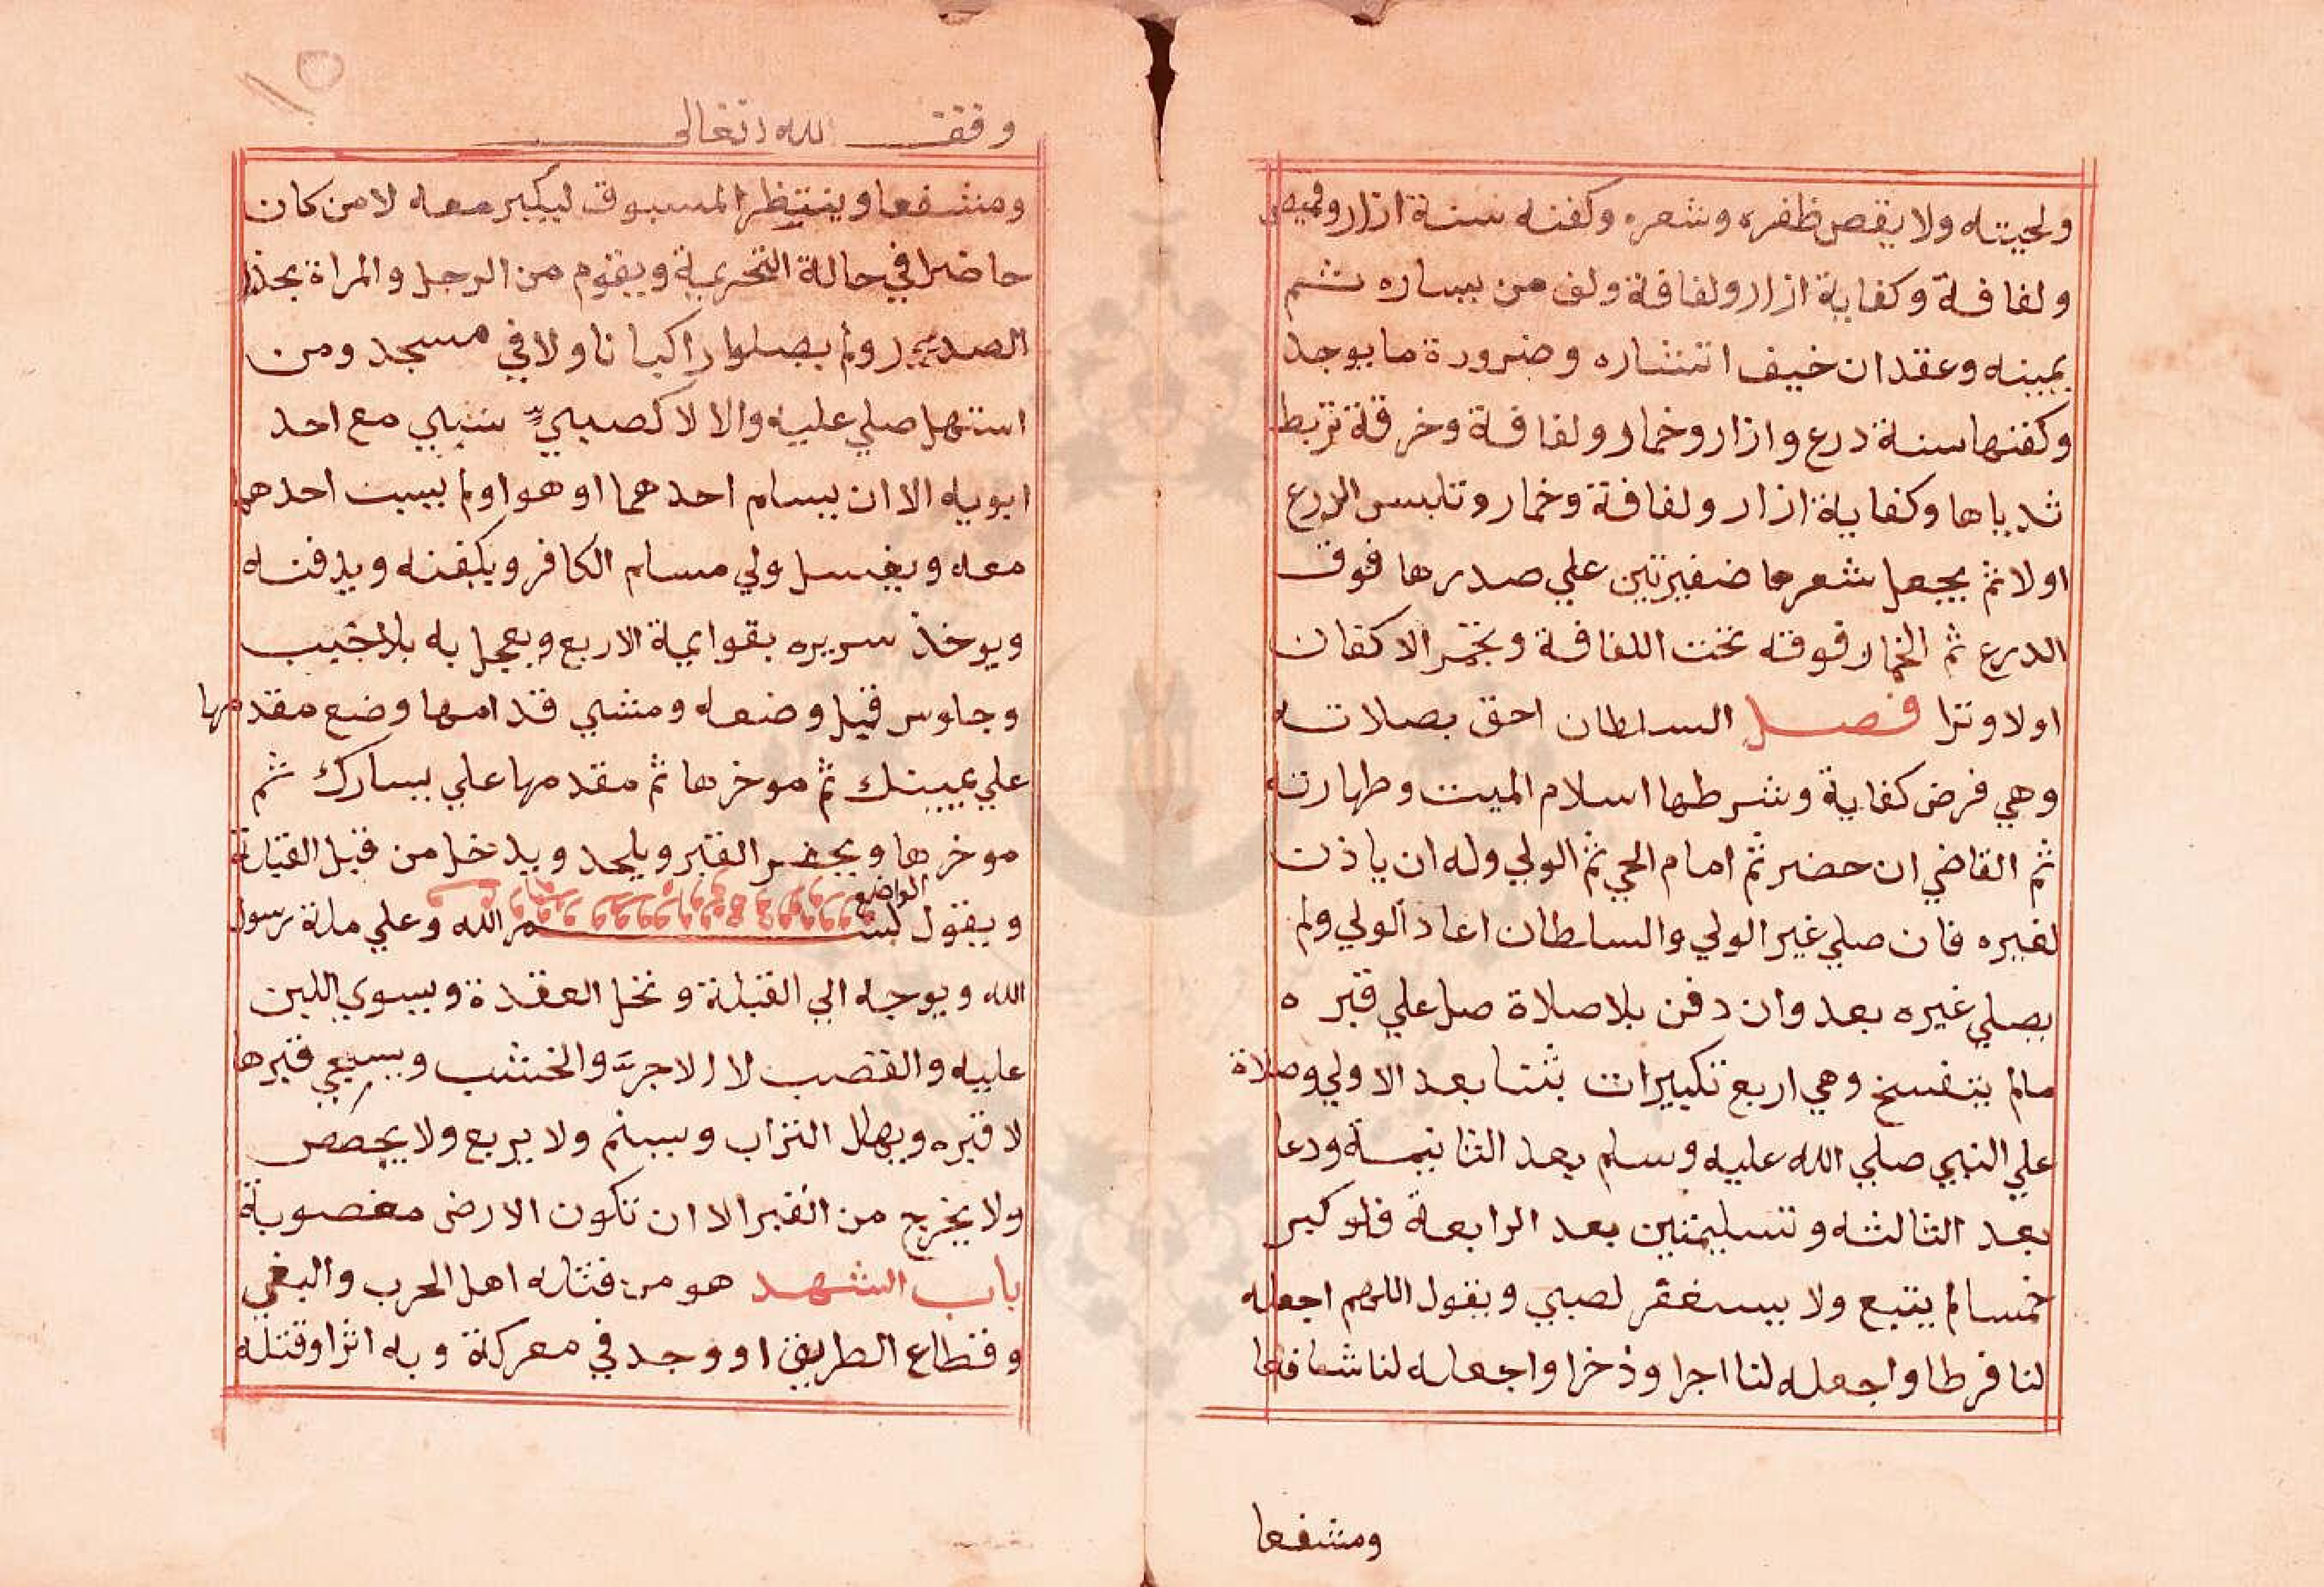 ولحيته ولا يقص ظفره وشعره وكفنه سنة ازار وقميص
ولفافة وكفاية ازار ولفافة ولف من يساره ثم
يمينه وعقد ان خيف انتشاره وضرورة ما يوجد
وكفنها سنة درع وازار وخمار ولفافة وخرقة تربط
ثدياها وكفاية ازار ولفافة وخمار وتلبس الدرع
اولا ثم يجعل شعرها ضفيرتين علي صدرها فوق
الدرع ثم الخمار فوقه تحت اللفافة وتجمر الاكفان
اولا وترا فصل السلطان احق بصلاته
وهي فرض كفاية وشرطها اسلام الميت وطهارته
ثم القاضي ان حضر ثم امام الحي ثم الولي وله ان ياذن
لغيره فان صلي غير الولي والسلطان اعاد الولي ولم
يصلي غيره بعد وان دفن بلا صلاة صل علي قبره
مالم يتفسخ وهي اربع تكبيرات بثنا بعد الاولي وصلاة
علي النبي صلي الله عليه وسلم بعد الثانيمة ودعا
بعد الثالثه وتسليمتين بعد الرابعة فلو كبر
خمسا لم يتبع ولا يستغفر لصبي ويقول اللهم اجعله
لنا فرطا واجعله لنا اجرا وذخرا واجعله لنا شافعا
ومشفعا
وقف لله تعالى
ومشفعا وينتظر المسبوق ليكبر معه لا من كان
حاضرا في حالة التحريمة ويقوم من الرجل والمراة بحذا
الصدر ولم يصلوا راكبانا ولا في مسجد ومن
استهل صلي عليه والا لا كصبي سبي مع احد
ابويه الا ان يسلم احدهما او هو اولم يسب احدهما
معه ويغسل ولي مسلم الكافر ويكفنه ويدفنه
ويوخذ سريره بقوايمة الاربع ويعجل به بلا خبب
وجلوس قبل وضعه ومشي قدامها وضع مقدمها
علي يمينك ثم موخرها ثم مقدمها علي يسارك ثم
موخرها ويحفر القبر ويلحد ويدخل من قبل القبلة
ويقول الواضع بسم الله وعلي ملة رسول
الله ويوجه الي القبلة وتحل العقدة ويسوي اللبن
عليه والقصب لا الاجر والخشب ويسجي قبرها
لا قبره ويهال التراب ويسنم ولا يربع ولا يجصص
ولا يخرج من القبر الا ان تكون الارض مغصوبة
باب الشهد هو من قتله اهل الحرب والبغي
وقطاع الطريق او وجد في معركة وبه اثر او قتله